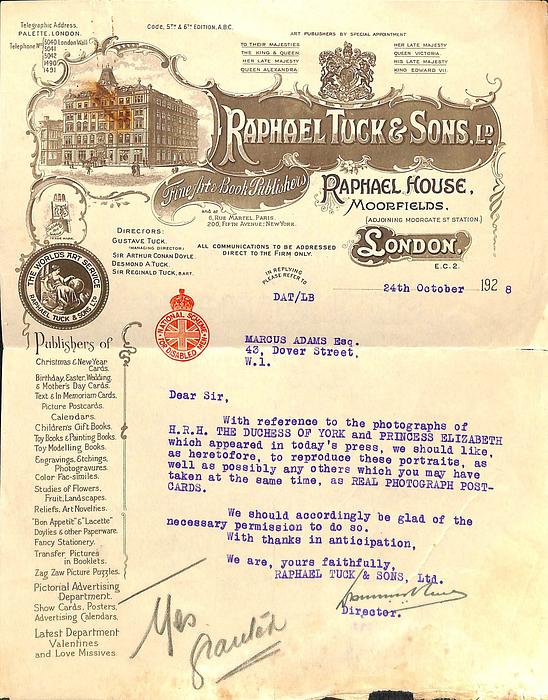 Telegraphic Address,
PALETTE, LONDON.
Telephone Nos 5040 London Wall
5041
5042
1490
1491
Code, 5TH & 6TH EDITION, A.B.C.
ART PUBLISHERS BY SPECIAL APPOINTMENT
TO THEIR MAJESTIES
THE KING & QUEEN.
HER LATE MAJESTY
QUEEN ALEXANDRA.
HER LATE MAJESTY
QUEEN VICTORIA.
HIS LATE MAJESTY
KING EDWARD VII.
RAPHAEL TUCK & SONS, LD.
Fine Art & Book Publishers
RAPHAEL HOUSE,
MOORFIELDS.
(ADJOINING MOORGATE ST STATION.)
LONDON.
E.C.2.
and at
6, RUE MARTEL, PARIS.
200, FIFTH AVENUE; NEW YORK.
TRADE MARK
THE WORLD'S ART SERVICE
RAPHAEL TUCK & SONS LTD
DIRECTORS:
GUSTAVE TUCK.
(MANAGING DIRECTOR)
SIR ARTHUR CONAN DOYLE.
DESMOND A. TUCK.
SIR REGINALD TUCK, BART.
ALL COMMUNICATIONS TO BE ADDRESSED
DIRECT TO THE FIRM ONLY.
IN REPLYING
PLEASE REFER TO
DAT/LB
24th October 1928
NATIONAL SCHEME
FOR DISABLED MEN
MARCUS ADAMS Esq.
43, Dover Street,
W.1.
Dear Sir,
With reference to the photographs of
H.R.H. THE DUCHESS OF YORK and PRINCESS ELIZABETH
which appeared in today's press, we should like,
as heretofore, to reproduce these portraits, as
well as possibly any others which you may have
taken at the same time, as REAL PHOTOGRAPH POST-
CARDS.
We should accordingly be glad of the
necessary permission to do so.
With thanks in anticipation,
We are, yours faithfully,
RAPHAEL TUCK & SONS, Ltd.
Director.
Yes
granted
Publishers of
Christmas & New Year
Cards.
Birthday, Easter, Wedding,
& Mother's Day Cards.
Text & In Memoriam Cards.
Picture Postcards.
Calendars.
Children's Gift Books.
Toy Books & Painting Books.
Toy Modelling Books.
Engravings, Etchings,
Photogravures.
Color Fac-similes.
Studies of Flowers,
Fruit, Landscapes.
Reliefs, Art Novelties.
"Bon Appetit" & "Lacette"
Doylies & other Paperware.
Fancy Stationery.
Transfer Pictures
in Booklets.
Zag Zaw Picture Puzzles.
Pictorial Advertising
Department.
Show Cards, Posters,
Advertising Calendars.
Latest Department
Valentines
and Love Missives.